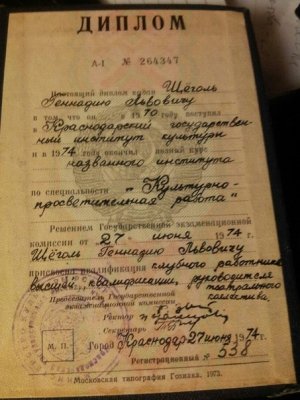 ДИПЛОМ
А-I № 264347
Настоящий диплом выдан Щёголь
Геннадию Львовичу
в том, что он в 1970 году поступил
в Краснодарский государствен-
ный институт культуры
и в 1974 году окончил полный курс
названного института
по специальности "Культурно-
просветительная работа"
Решением Государственной экзаменационной
комиссии от 27 июня 1974 г.
Щёголь Геннадию Львовичу
присвоена квалификация клубного работника
высшей квалификации, руководителя
театрального
коллектива.
Председатель Государственной
экзаменационной комиссии
Ректор
Секретарь
М. П.
Город Краснодар 27 июня 1974 г.
Регистрационный № 538
Московская типография Гознака. 1973.